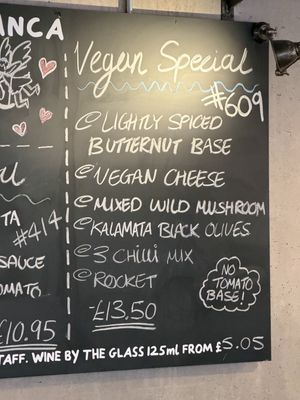 ANCA
Vegan Special
#609
@ LIGHTLY SPICED
BUTTERNUT BASE
@ VEGAN CHEESE
@ MIXED WILD MUSHROOM
@ KALAMATA BLACK OLIVES
@ 3 CHILLI MIX
@ ROCKET
£13.50
NO
TOMATO
BASE!
TA
#414
SAUCE
OMATO
£10.95
TAFF. WINE BY THE GLASS 125ml FROM £5.05